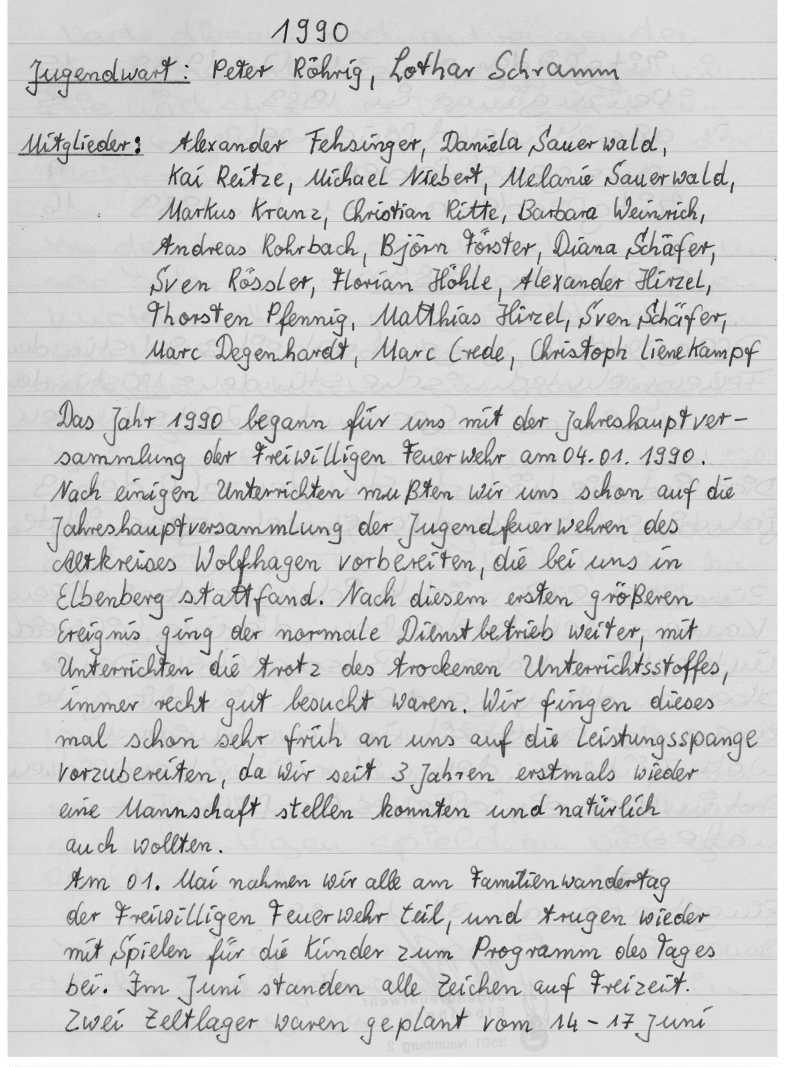 1990
Jugendwart: Peter Röhrig, Lothar Schramm
Mitglieder: Alexander Fehsinger, Daniela Sauerwald,
Kai Reitze, Michael Niebert, Melanie Sauerwald,
Markus Kranz, Christian Ritte, Barbara Weinrich,
Andreas Rohrbach, Björn Förster, Diana Schäfer,
Sven Rössler, Florian Höhle, Alexander Hirzel,
Thorsten Pfennig, Matthias Hirzel, Sven Schäfer,
Marc Degenhardt, Marc Crede, Christoph Lienekampf
Das Jahr 1990 begann für uns mit der Jahreshauptver-
sammlung der Freiwilligen Feuerwehr am 04.01.1990.
Nach einigen Unterrichten mußten wir uns schon auf die
Jahreshauptversammlung der Jugendfeuerwehren des
Altkreises Wolfhagen vorbereiten, die bei uns in
Elbenberg stattfand. Nach diesem ersten größeren
Ereignis ging der normale Dienstbetrieb weiter, mit
Unterrichten die trotz des trockenen Unterrichtsstoffes,
immer recht gut besucht waren. Wir fingen dieses
mal schon sehr früh an uns auf die Leistungsspange
vorzubereiten, da wir seit 3 Jahren erstmals wieder
eine Mannschaft stellen konnten und natürlich
auch wollten.
Am 01. Mai nahmen wir alle am Familienwandertag
der Freiwilligen Feuerwehr teil, und trugen wieder
mit Spielen für die Kinder zum Programm des Tages
bei. Im Juni standen alle Zeichen auf Freizeit.
Zwei Zeltlager waren geplant vom 14-17 Juni